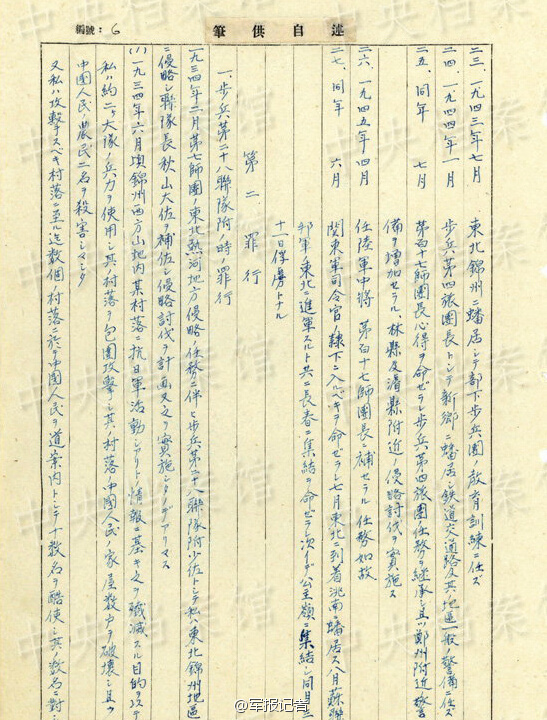 編號: 6
筆供自述
二三、一九四三年七月 東北錦州ニ蟠居シテ部下歩兵團ノ教育訓練ニ任ズ
二四、一九四四年一月 歩兵第四旅團長トシテ新郷ニ蟠居シ鉄道交通路及其ノ地區一般ノ警備ニ任ズ
二五、同年 七月 第百十七師團長心得ヲ命ゼラレ歩兵第四旅團任務ヲ継承シ且ツ鄭州附近警
備ヲ増加セラル、林縣及濬縣附近ノ侵略討伐ヲ實施ス
二六、一九四五年四月 任陸軍中將 第百十七師團長ニ補セラル 任務如故
二七、同年 六月 関東軍司令官ノ隷下ニ入ルベキヲ命ゼラレ七月東北ニ到着洮南ニ蟠居ス八月蘇聯
邦軍ノ東北ニ進軍スルト共ニ長春ニ集結ヲ命ゼラレ次イデ公主嶺ニ集結シ同月三
十一日俘虜トナル
第二 罪行
一、歩兵第二十八聯隊附ノ時ノ罪行
一九三四年二月第七師團ノ東北熱河地方侵略ノ任務ニ伴ヒ歩兵第二十八聯隊附少佐トシテ私ハ東北錦州地區
ニ侵略シ聯隊長秋山大佐ヲ補佐シ侵略討伐ノ計画又之ヲ實施シタノデアリマス
(1) 一九三四年六月頃錦州西方山地内某村落ニ抗日軍活動シアリトノ情報ニ基キ之ヲ殲滅スル目的ヲ以テ
私ハ約二ヶ大隊ノ兵力ヲ使用シ其ノ村落ヲ包囲攻撃シ其ノ村落ノ中國人民ノ家屋数カヲ破壊シ且ツ
中國人民農民二名ヲ殺害シマシタ
又私ハ攻撃スベキ村落ニ至ル迄数個ノ村落ニ於テ中國人民ヲ道案内トシテ十数名ヲ酷使シ其ノ数名ニ対シ
中央档案馆
@军报记者